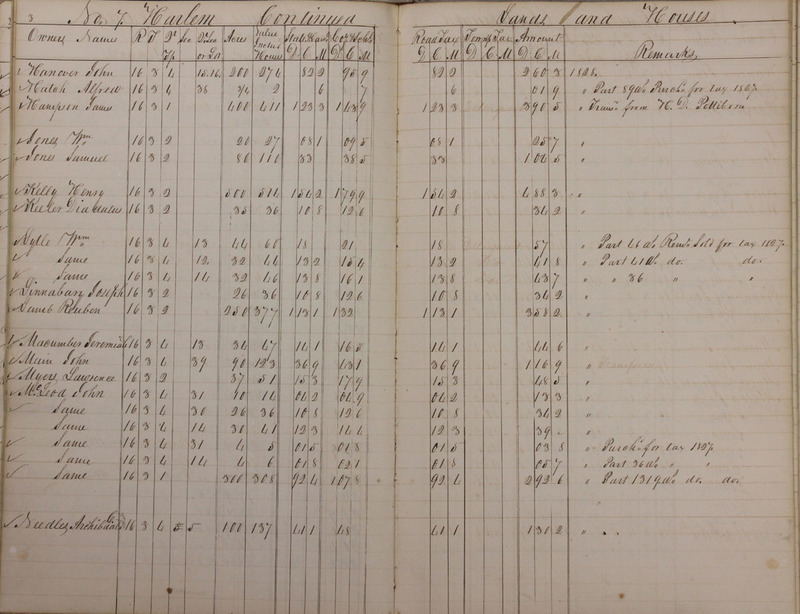 3 No. 7. Harlem Continued Lands and Houses
Owners Names R T Qr Tp Sec Acres Value Houses State Tax Road Tax Amount Remarks
D C M D C M D C M D C M D C M
Hanover John 16 3 4 200 274 82 2 95 9 82 2 2 60 3 1828.
Hatch Alfred 16 3 4 38 3/4 2 6 7 6 01 9 " Part 89 as. Purchd for tax 1827
Hampson James 16 3 1 400 411 1 23 3 1 43 9 1 23 3 3 90 5 " Transd from H. D. Pettibone
Jones Wm 16 3 2 20 27 08 1 09 5 08 1 25 7 "
Jones Samuel 16 3 2 80 110 33 38 5 33 1 04 5 "
Kelly Henry 16 3 2 500 514 1 54 2 1 79 9 1 54 2 4 88 3 "
Keeler Diadatus 16 3 2 35 36 10 8 12 6 10 8 34 2 "
Lytle Wm 16 3 4 13 44 60 18 21 18 57 " Part 46 as. Remd Sold for tax 1827
Same 16 3 4 12 32 44 13 2 15 4 13 2 41 8 " Part 41 as. do. do.
Same 16 3 4 14 32 46 13 8 16 1 13 8 43 7 " " 36 " "
Linnabary Joseph 16 3 2 26 36 10 8 12 6 10 8 34 2 "
Lamb Reuben 16 3 2 250 377 1 13 1 1 32 1 13 1 3 58 2 "
Macumber Jeremiah 16 3 4 13 34 47 14 1 16 5 14 1 44 6 "
Main John 16 3 4 39 90 123 36 9 43 1 36 9 1 16 9 "
Myers Lawrence 16 3 2 37 51 15 3 17 9 15 3 48 5 "
McLeod John 16 3 4 31 10 14 04 2 04 9 04 2 13 3 "
Same 16 3 4 30 26 36 10 8 12 6 10 8 34 2 "
Same 16 3 4 14 30 41 12 3 14 4 12 3 39 "
Same 16 3 4 31 4 5 01 5 01 8 01 5 03 8 " Purchd for tax 1827
Same 16 3 4 14 4 6 01 8 02 1 01 8 05 7 " Part 36 as. " "
Same 16 3 1 300 308 92 4 1 07 8 92 4 2 92 6 " Part 1319 as. do. do.
Needles Archibald 16 3 4 5 5 100 137 41 1 48 41 1 1 30 2 "